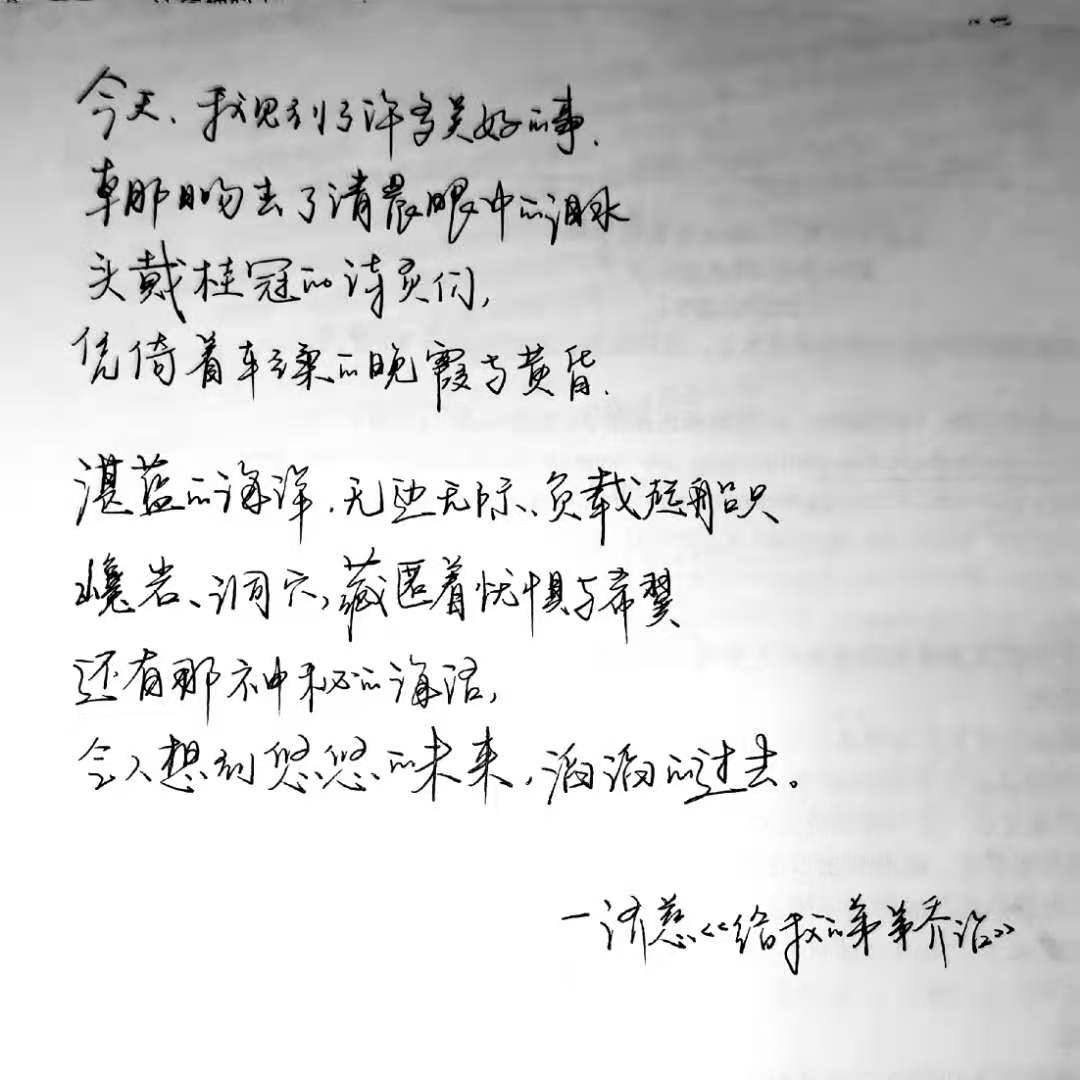 今天、我见到了许多美好的事.
朝那日吻去了清晨眼中的泪水
头戴桂冠的诗人们,
凭倚着轻柔的晚霞与黄昏.
湛蓝的海洋.无边无际、负载起船只
巉岩、洞穴,藏匿着忧惧与希翼
还有那神秘的海语,
令人想到悠悠的未来,滔滔的过去。
—济慈《给我的弟弟乔治》